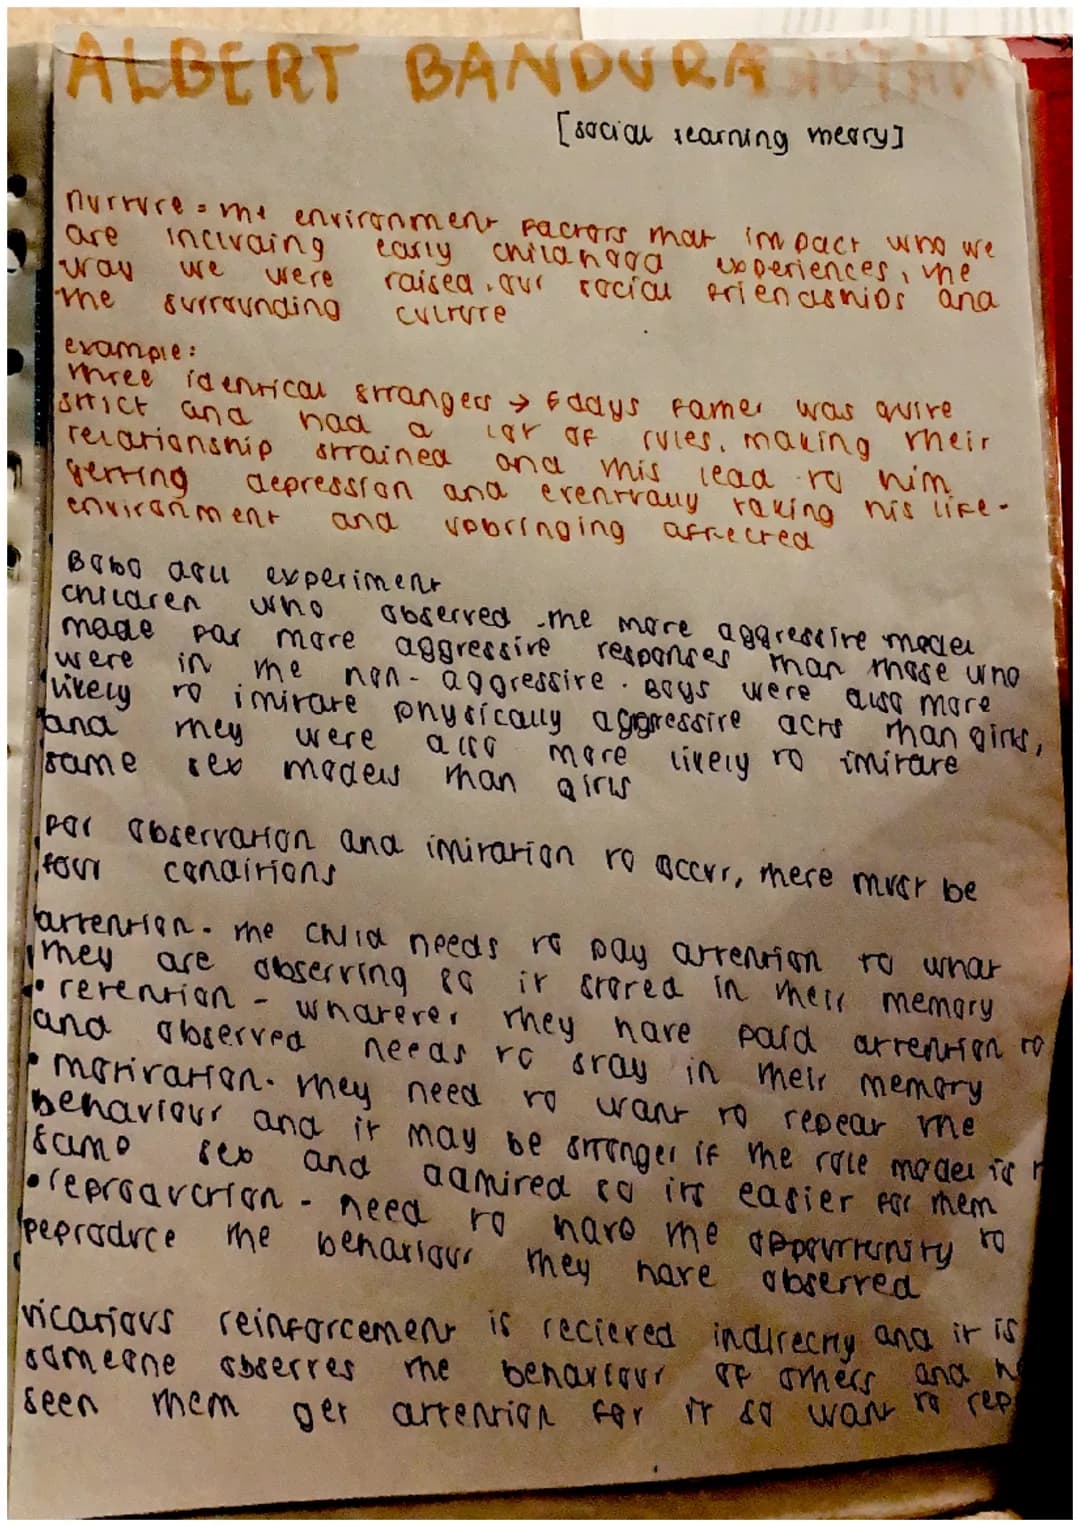 ALBERT BANDURA
[social learning theory]
nurture = the environment factors that impact who we
are including early childhood experiences, the
way we were raised, our social friendships and
the surrounding culture
example:
three identical strangers → Eddys father was quite
strict and had a lot of rules, making their
relationship strained and this lead to him
getting depression and eventually taking his life -
environment and upbringing affected
Bobo doll experiment
children who observed the more aggressive model
made far more aggressive responses than those who
were in the non-aggressive. Boys were also more
likely to imitate physically aggressive acts than girls,
and they were also more likely to imitate
same sex models than girls
for observation and imitation to occur, there must be
four conditions
attention - the child needs to pay attention to what
they are observing so it stored in their memory
• retention - whatever they have paid attention to
and observed needs to stay in their memory
• motivation - they need to want to repeat the
behaviour and it may be stronger if the role model is
same sex and admired so its easier for them
• reproduction - need to have the oppourtunity to
reproduce the behaviour they have observed
vicarious reinforcement is recieved indirectly and it is
someone observes the behaviour of others and
seen them get attention for it so want to rep